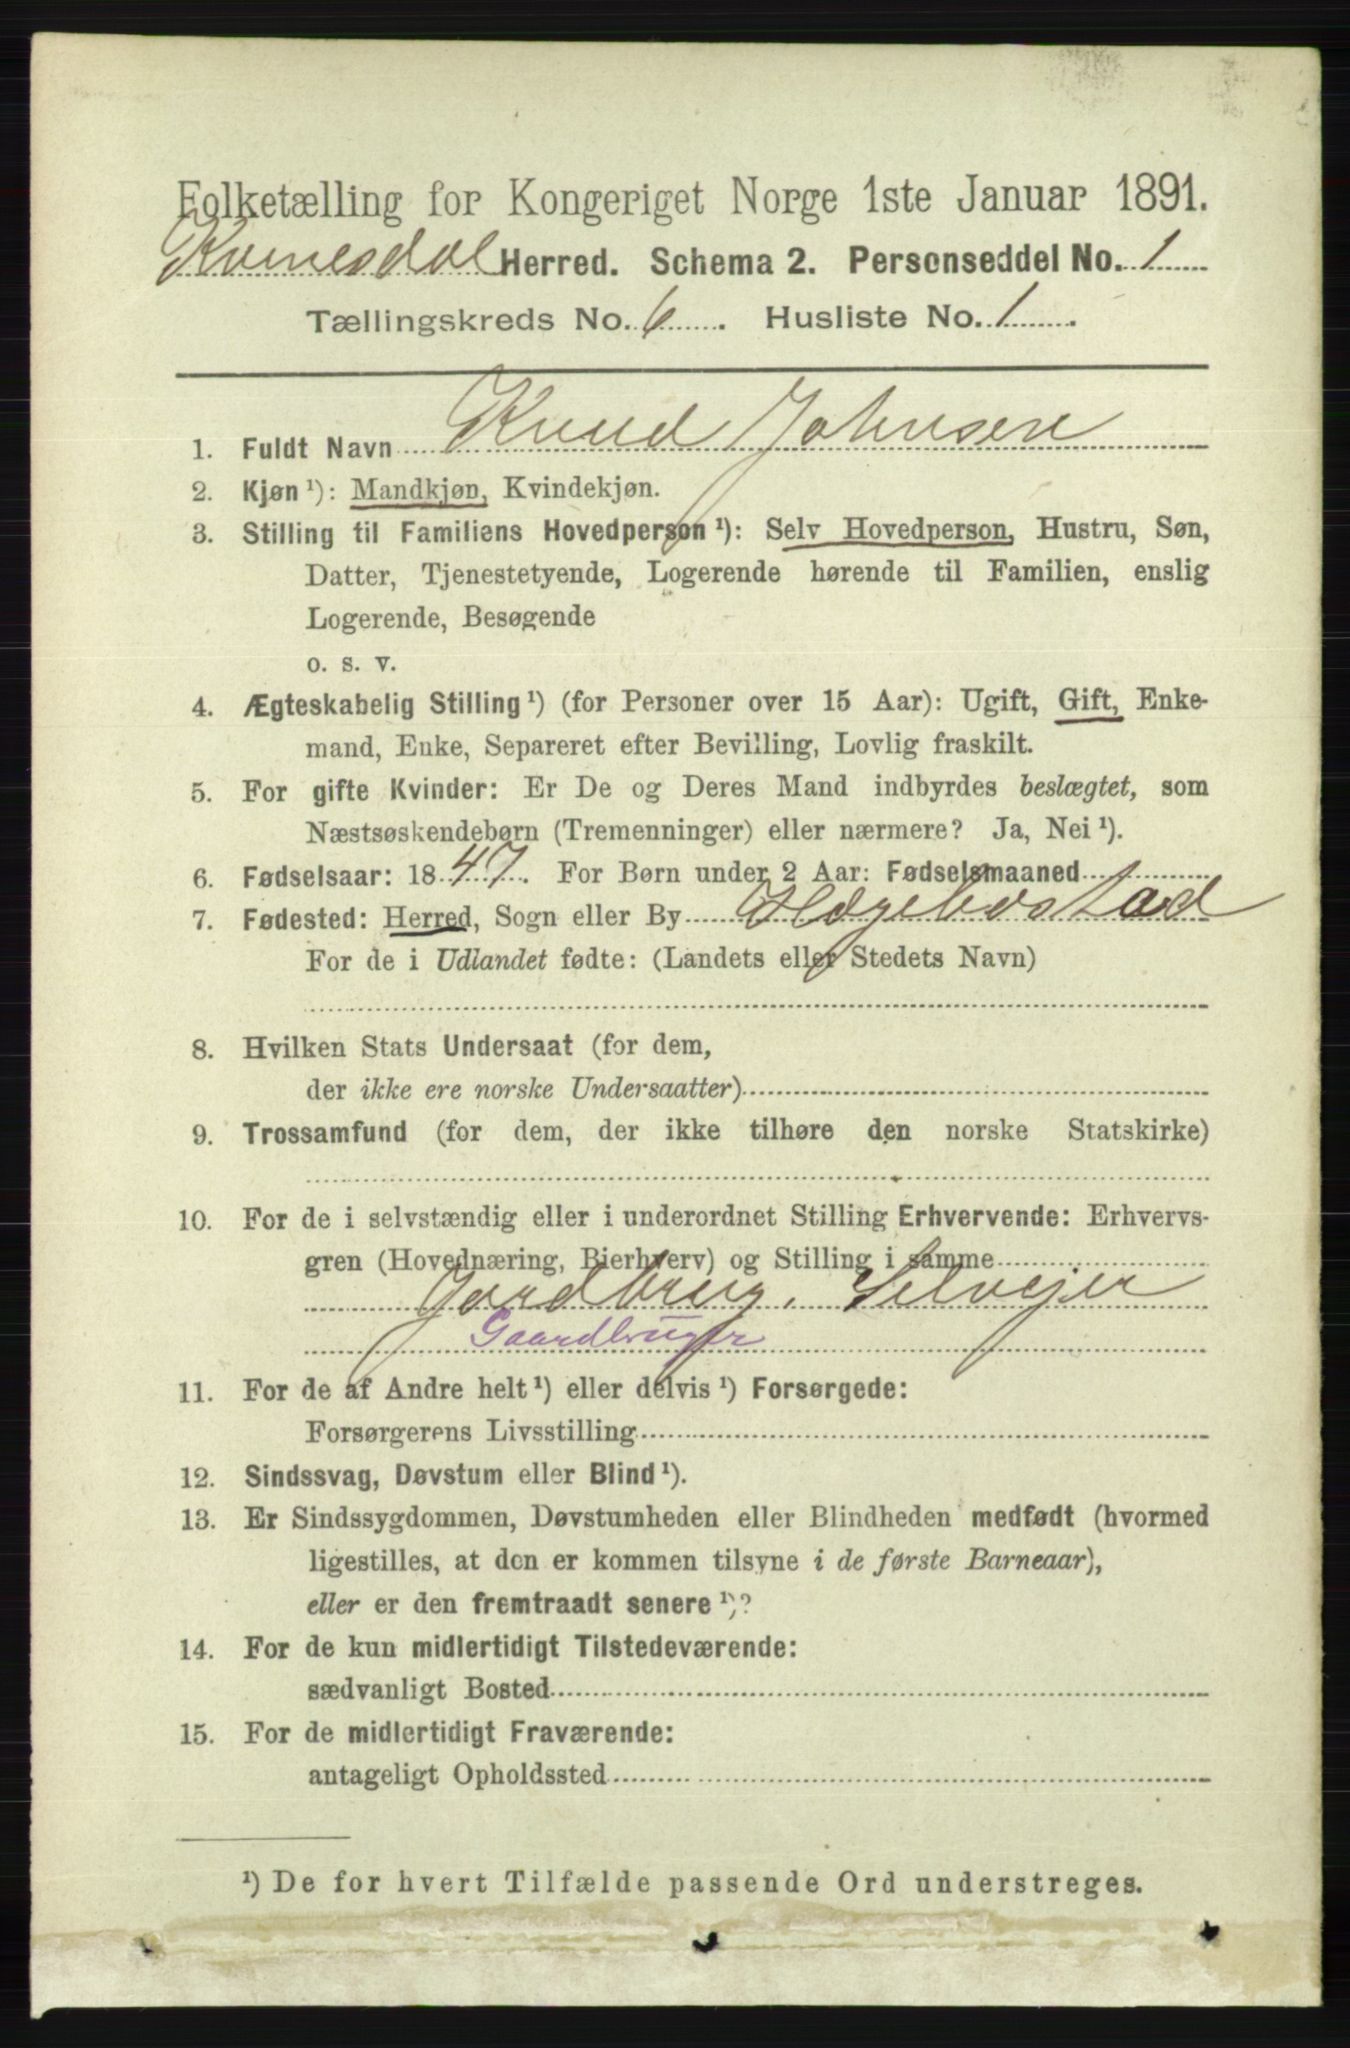 Folketælling for Kongeriget Norge 1ste Januar 1891.
Kvinesdal Herred. Schema 2. Personseddel No. 1
Tællingskreds No. 6. Husliste No. 1.
1. Fuldt Navn Knud Johnsen
2. Kjøn ¹): Mandkjøn, Kvindekjøn.
3. Stilling til Familiens Hovedperson ¹): Selv Hovedperson, Hustru, Søn,
Datter, Tjenestetyende, Logerende hørende til Familien, enslig
Logerende, Besøgende
o. s. v.
4. Ægteskabelig Stilling ¹) (for Personer over 15 Aar): Ugift, Gift, Enke-
mand, Enke, Separeret efter Bevilling, Lovlig fraskilt.
5. For gifte Kvinder: Er De og Deres Mand indbyrdes beslægtet, som
Næstsøskendebørn (Tremenninger) eller nærmere? Ja, Nei ¹).
6. Fødselsaar: 1847. For Børn under 2 Aar: Fødselsmaaned
7. Fødested: Herred, Sogn eller By Hægebostad
For de i Udlandet fødte: (Landets eller Stedets Navn)
8. Hvilken Stats Undersaat (for dem,
der ikke ere norske Undersaatter)
9. Trossamfund (for dem, der ikke tilhøre den norske Statskirke)
10. For de i selvstændig eller i underordnet Stilling Erhvervende: Erhvervs-
gren (Hovednæring, Bierhverv) og Stilling i samme
Jordbrug, Selvejer
Gaardbruger
11. For de af Andre helt ¹) eller delvis ¹) Forsørgede:
Forsørgerens Livsstilling
12. Sindssvag, Døvstum eller Blind ¹).
13. Er Sindssygdommen, Døvstumheden eller Blindheden medfødt (hvormed
ligestilles, at den er kommen tilsyne i de første Barneaar),
eller er den fremtraadt senere ¹)?
14. For de kun midlertidigt Tilstedeværende:
sædvanligt Bosted
15. For de midlertidigt Fraværende:
antageligt Opholdssted
¹) De for hvert Tilfælde passende Ord understreges.